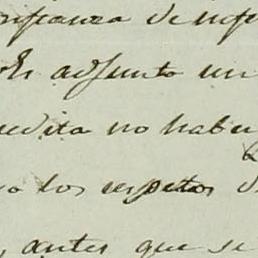 nfianza de
Es adjunto un
edita no haber
los respetos
, antes que se